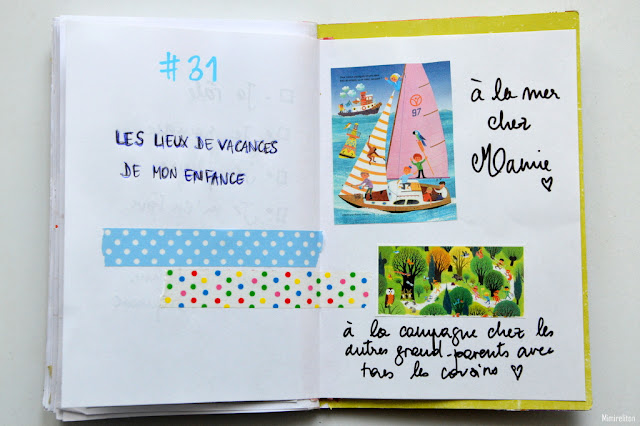 #31
LES LIEUX DE VACANCES
DE MON ENFANCE
à la mer
chez
Mamie
97
à la campagne chez les
autres grand-parents avec
tous les cousins
Mimirelton